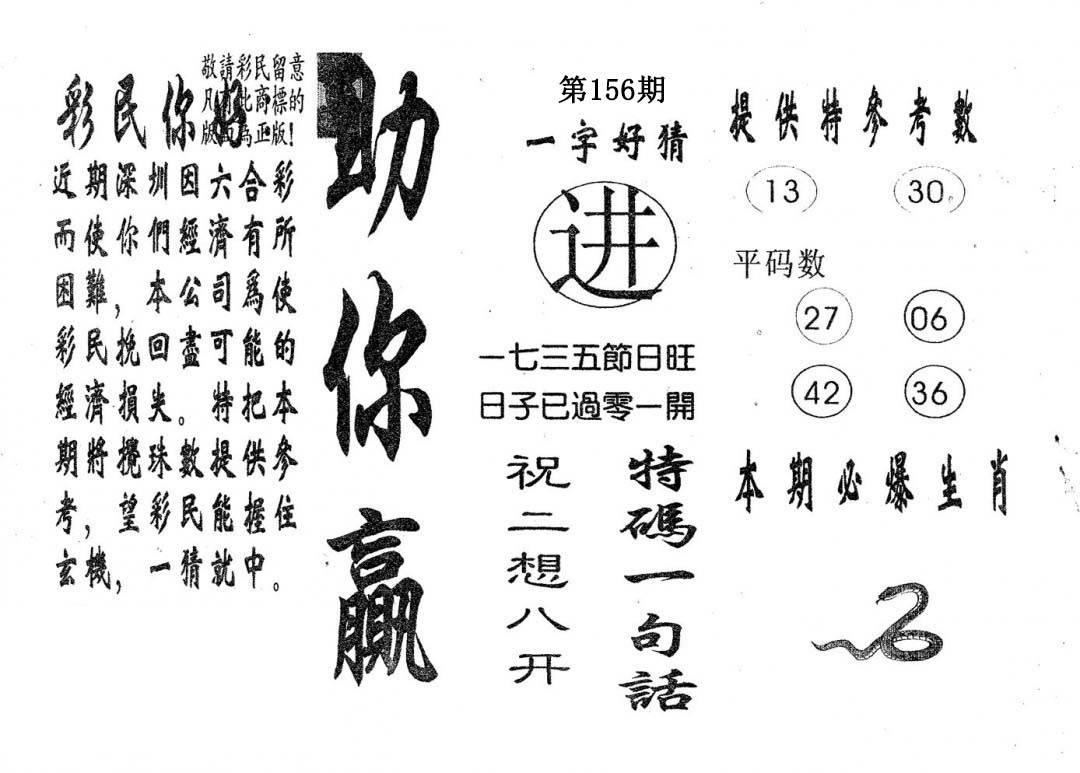 敬請彩民留意
凡 此商標的
版 為正版!
彩民你好
近期深圳因六合彩
而使你們經濟有所
困難，本公司爲使
彩民挽回盡可能的
經濟損失。特把本
期將攪珠數提供參
考，望彩民能握住
玄機，一猜就中。
助你贏
第156期
一字好猜
进
一七三五節日旺
日子已過零一開
特碼一句話
祝二想八开
提供特參考數
13 30
平码数
27 06
42 36
本期必爆生肖